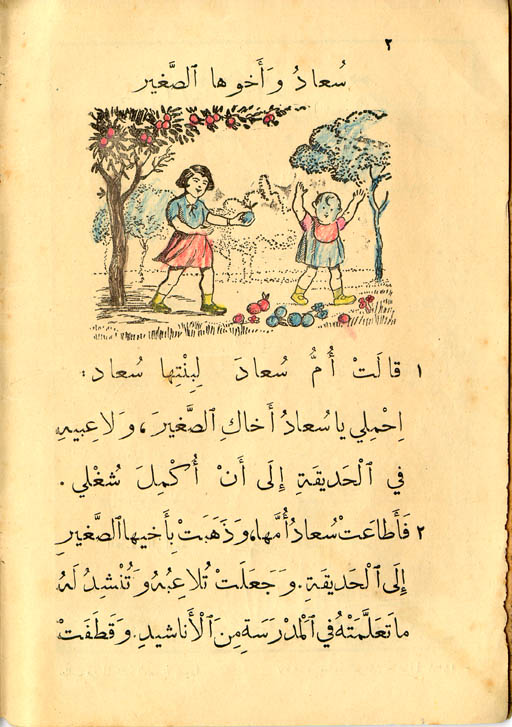 ٢
سُعادُ وَأَخوها الصَّغير
١ قالَتْ أُمُّ سُعادَ لِبِنْتِها سُعاد:
اِحْمِلي يا سُعادُ أَخاكِ الصَّغيرَ، وَلاعِبيهِ
في الْحَديقَةِ إِلَى أَنْ أُكْمِلَ شُغْلي.
٢ فَأَطاعَتْ سُعادُ أُمَّها، وَذَهَبَتْ بِأَخيها الصَّغيرِ
إِلَى الْحَديقَةِ. وَجَعَلَتْ تُلاعِبُهُ وَتُنْشِدُ لَهُ
ما تَعَلَّمَتْهُ في الْمَدْرَسَةِ مِنَ الْأَناشيدِ. وَقَطَفَتْ